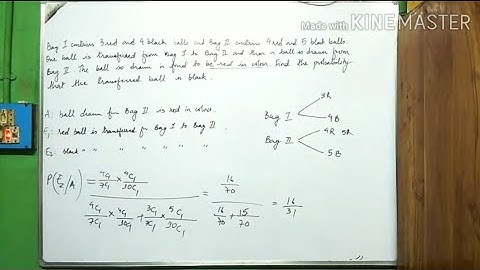 Made with KINEMASTER
Bag I contains 3 red and 4 black balls and Bag II contains 4 red and 5 black balls.
One ball is transferred from Bag I to Bag II and then a ball is drawn from
Bag II. The ball so drawn is found to be red in colour. Find the probability
that the transferred ball is black.
A: ball drawn from Bag II is red in colour.
E₁: red ball is transferred fr Bag I to Bag II.
E₂: black " " " " " " "
Bag I 3R
4B
Bag II 4R 5R
5B
P(E₂/A) = (4C₁/7C₁ × 4C₁/10C₁) / (4C₁/7C₁ × 4C₁/10C₁ + 3C₁/7C₁ × 5C₁/10C₁) = (16/70) / (16/70 + 15/70) = 16/31